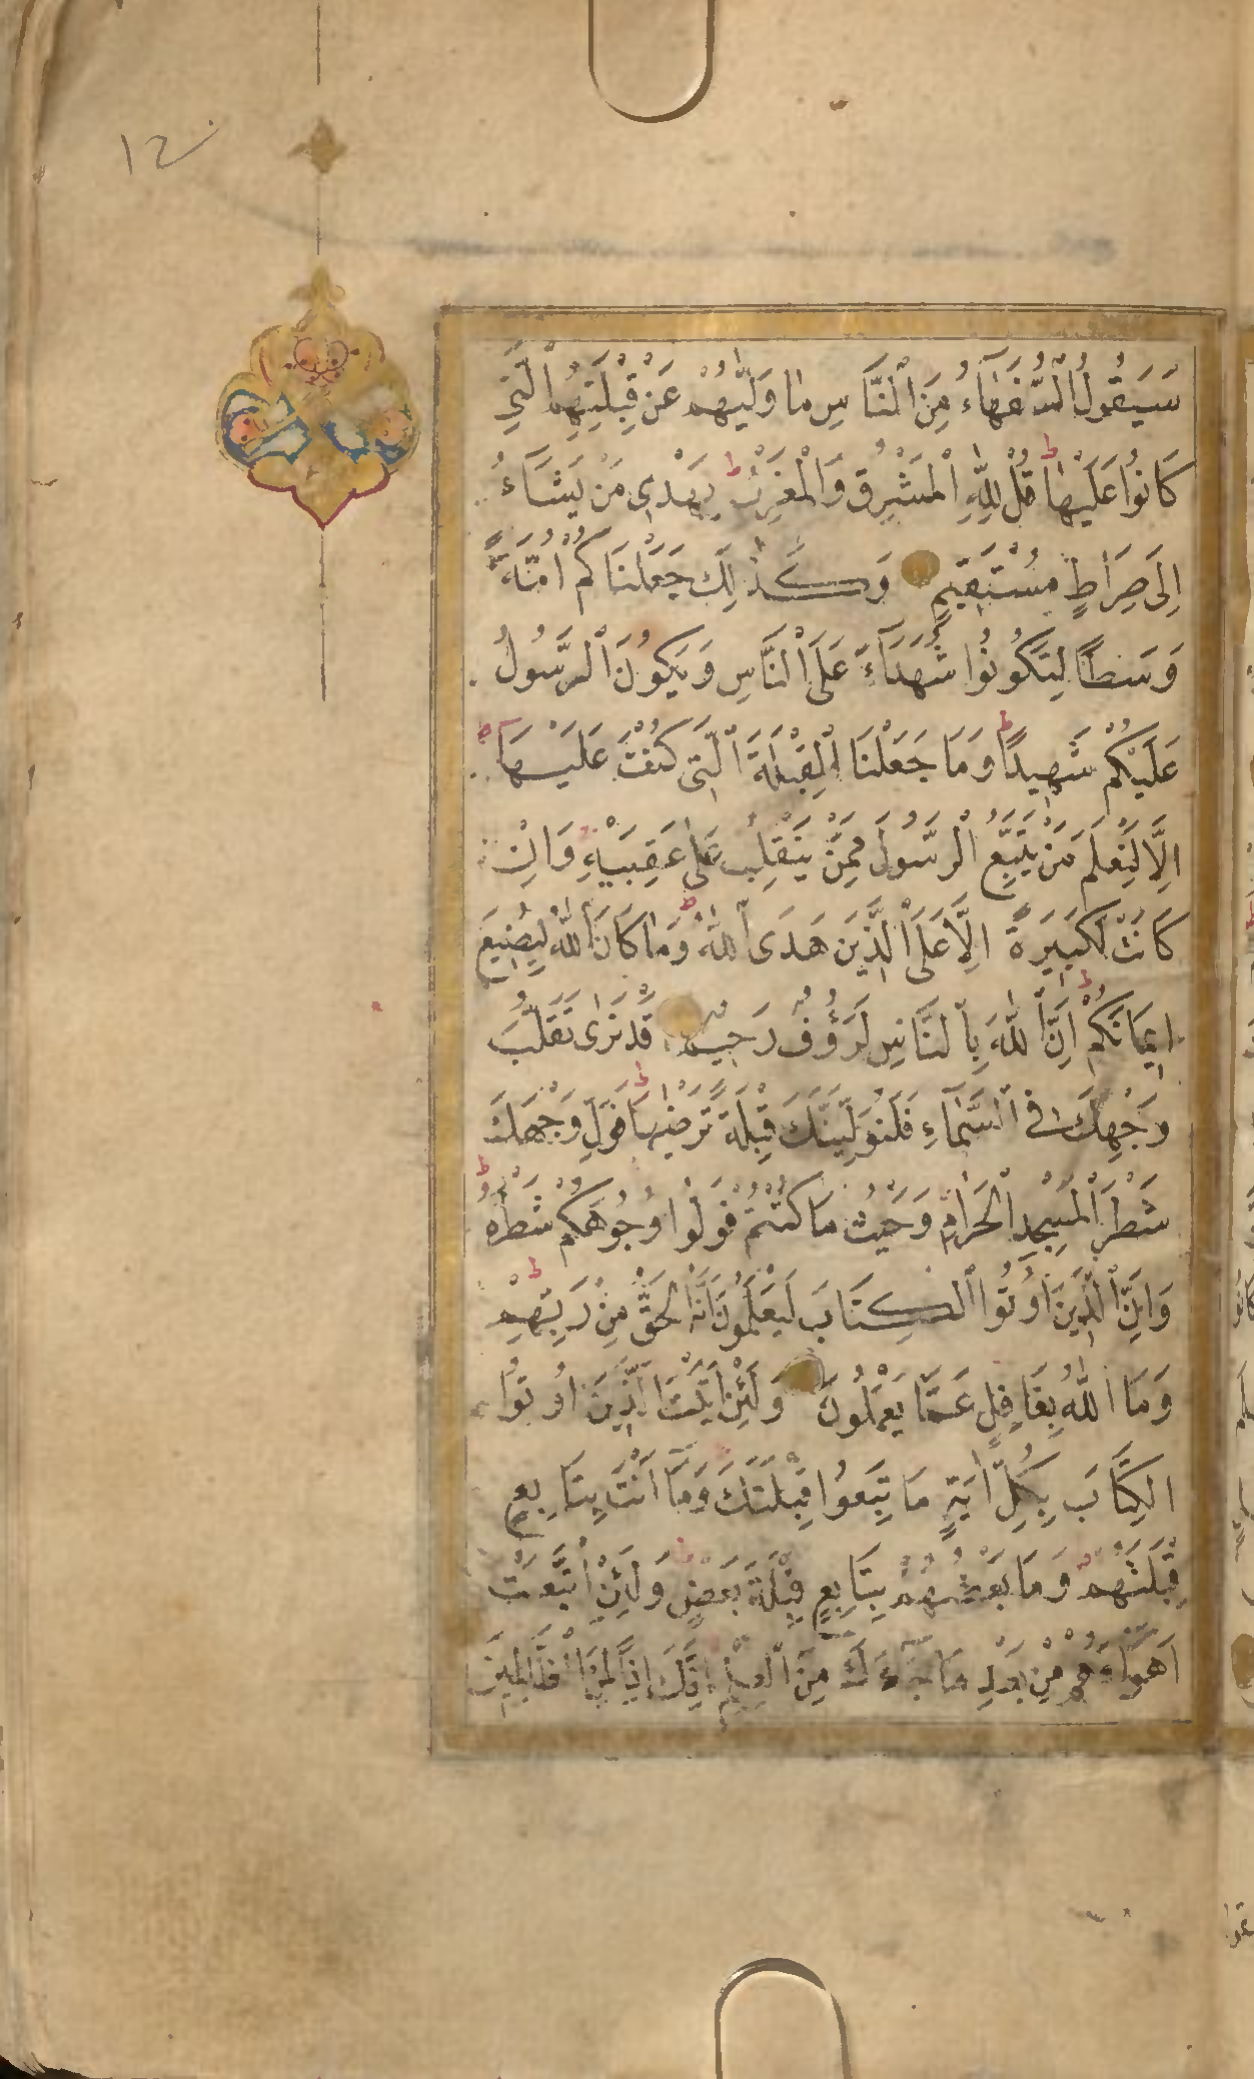 ١٢
سَيَقُولُ السُّفَهَاءُ مِنَ النَّاسِ مَا وَلّٰيهُمْ عَنْ قِبْلَتِهِمُ الَّتِي
كَانُوا عَلَيْهَا ط قُلْ لِلّٰهِ الْمَشْرِقُ وَالْمَغْرِبُ ط يَهْدِي مَنْ يَشَاءُ
اِلَى صِرَاطٍ مُسْتَقِيمٍ وَكَذٰلِكَ جَعَلْنَاكُمْ اُمَّةً
وَسَطًا لِتَكُونُوا شُهَدَاءَ عَلَى النَّاسِ وَيَكُونَ الرَّسُولُ
عَلَيْكُمْ شَهِيدًا ط وَمَا جَعَلْنَا الْقِبْلَةَ الَّتِي كُنْتَ عَلَيْهَا
اِلَّا لِنَعْلَمَ مَنْ يَتَّبِعُ الرَّسُولَ مِمَّنْ يَنْقَلِبُ عَلٰى عَقِبَيْهِ وَاِنْ
كَانَتْ لَكَبِيرَةً اِلَّا عَلَى الَّذِينَ هَدَى اللّٰهُ ط وَمَا كَانَ اللّٰهُ لِيُضِيعَ
اِيمَانَكُمْ ط اِنَّ اللّٰهَ بِالنَّاسِ لَرَؤُفٌ رَحِيمٌ قَدْ نَرٰى تَقَلُّبَ
وَجْهِكَ فِي السَّمَاءِ فَلَنُوَلِّيَنَّكَ قِبْلَةً تَرْضٰيهَا ط فَوَلِّ وَجْهَكَ
شَطْرَ الْمَسْجِدِ الْحَرَامِ وَحَيْثُ مَا كُنْتُمْ فَوَلُّوا وُجُوهَكُمْ شَطْرَهُ ط
وَاِنَّ الَّذِينَ اُوتُوا الْكِتَابَ لَيَعْلَمُونَ اَنَّهُ الْحَقُّ مِنْ رَبِّهِمْ ط
وَمَا اللّٰهُ بِغَافِلٍ عَمَّا يَعْمَلُونَ وَلَئِنْ اَتَيْتَ الَّذِينَ اُوتُوا
الْكِتَابَ بِكُلِّ اٰيَةٍ مَا تَبِعُوا قِبْلَتَكَ وَمَا اَنْتَ بِتَابِعٍ
قِبْلَتَهُمْ وَمَا بَعْضُهُمْ بِتَابِعٍ قِبْلَةَ بَعْضٍ وَلَئِنِ اتَّبَعْتَ
اَهْوَاءَهُمْ مِنْ بَعْدِ مَا جَاءَكَ مِنَ الْعِلْمِ اِنَّكَ اِذًا لَمِنَ الظَّالِمِينَ